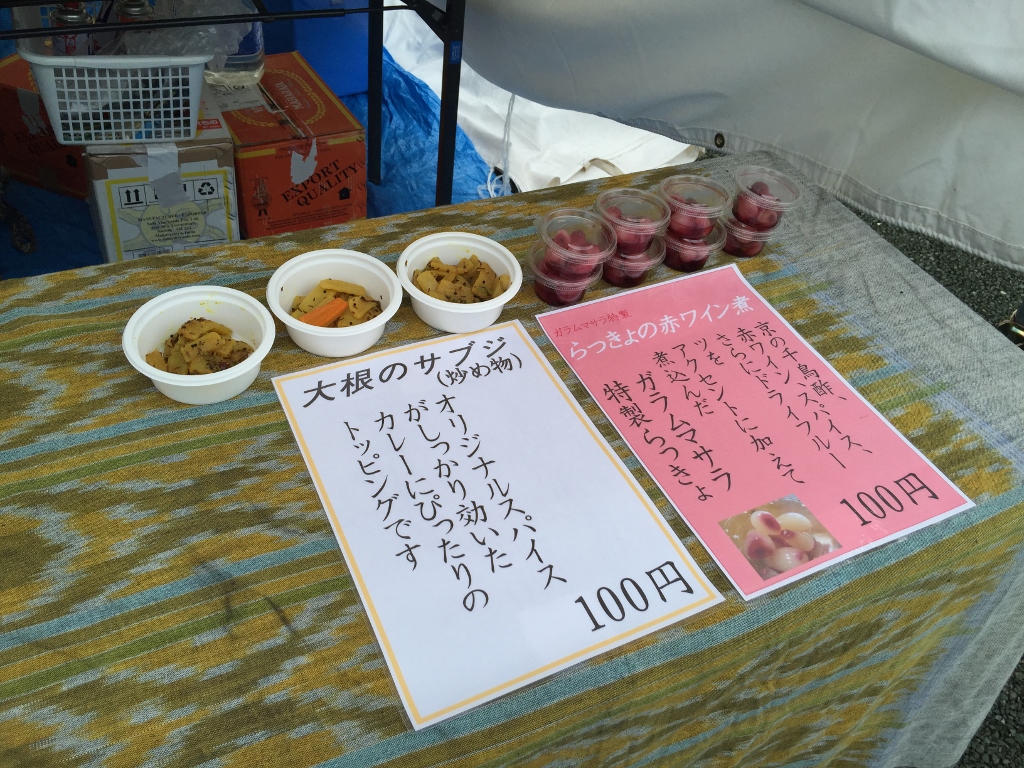 EXPORT
QUALITY
大根のサブジ
(炒め物)
オリジナルスパイス
がしっかり効いた
カレーにぴったりの
トッピングです
100円
ガラムマサラ特製
らっきょの赤ワイン煮
京の千鳥酢、
赤ワイン、スパイス、
さらにドライフルー
ツをアクセントに加えて
煮込んだ
ガラムマサラ
特製らっきょ
100円